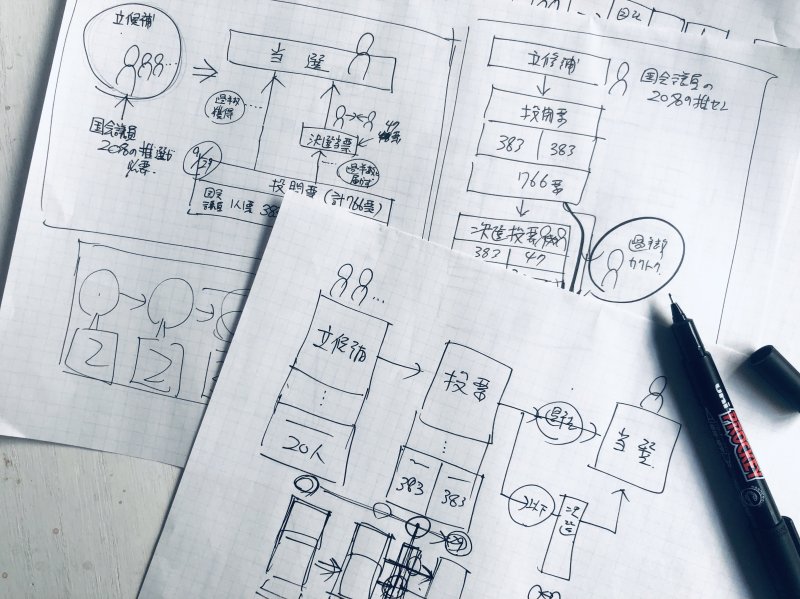 立候補
当選
過半数
獲得
国会議員
20%の推薦が
必要
決選投票
過半数に
届かず
9/27
投開票(計766票)
国会
議員 1人1票 38
2
2
図式
立候補
国会議員の
20%の推せん
投開票
383 383
766票
決選投票
383 47
過半数
カクトク
立候補
20人
投票
383 383
過半数
当選
以下
決選
29
uni
PROCKEY